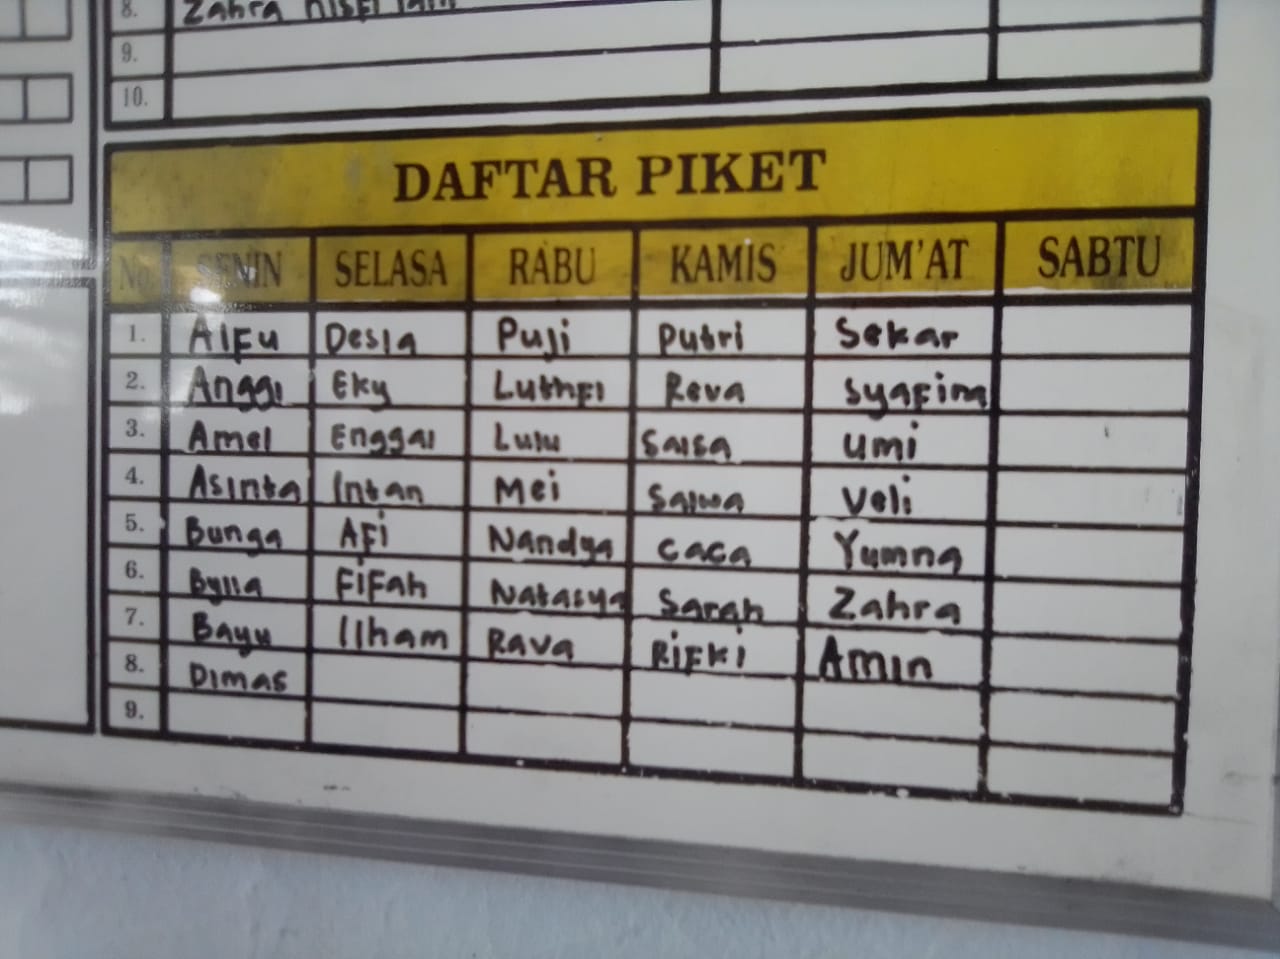 8. Zahra
9.
10.
DAFTAR PIKET
No. SENIN SELASA RABU KAMIS JUM'AT SABTU
1. Alfu Desla Puji Putri Sekar
2. Anggi Eky Luthfi Reva Syafira
3. Amel Enggal Lulu Salsa Umi
4. Asinta Intan Mei Salwa Veli
5. Bunga Afi Nandya Caca Yumna
6. Bylla Fifah Natasya Sarah Zahra
7. Bayu Ilham Rava Rifki Amin
8. Dimas
9.